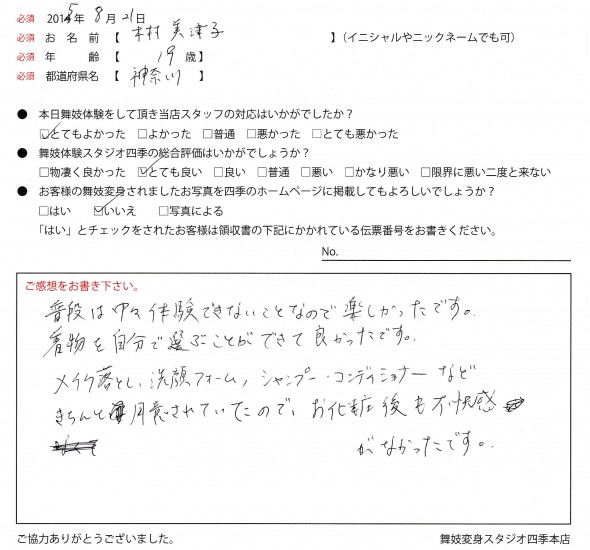 必須 2015年 8月 21日
必須 お 名 前 【 木村 美津子 】(イニシャルやニックネームでも可)
必須 年 齢 【 19 歳】
必須 都道府県名 【 神奈川 】
● 本日舞妓体験をして頂き当店スタッフの対応はいかがでしたか?
☑とてもよかった □よかった □普通 □悪かった □とても悪かった
● 舞妓体験スタジオ四季の総合評価はいかがでしょうか?
□物凄く良かった ☑とても良い □良い □普通 □悪い □かなり悪い □限界に悪い二度と来ない
● お客様の舞妓変身されましたお写真を四季のホームページに掲載してもよろしいでしょうか?
□はい ☑いいえ □写真による
「はい」とチェックをされたお客様は領収書の下記にかかれている伝票番号をお書きください。
No.
ご感想をお書き下さい。
普段は中々体験できないことなので楽しかったです。
着物を自分で選ぶことができて良かったです。
メイク落とし, 洗顔フォーム, シャンプー・コンディショナーなど
きちんと用意されていたので、お化粧後も不快感
がなかったです。
ご協力ありがとうございました。 舞妓変身スタジオ四季本店